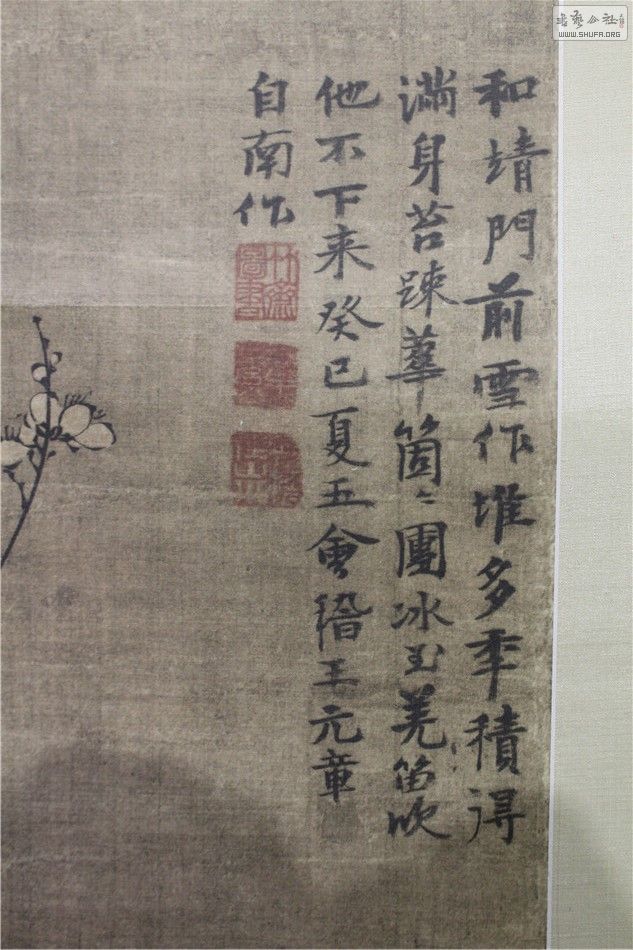 和靖門前雪作堆多年積得
滿身苔踈華箇〻團冰玉羌笛吹
他不下来癸巳夏五會稽王元章
自南作
竹齋圖書
WWW.SHUFA.ORG